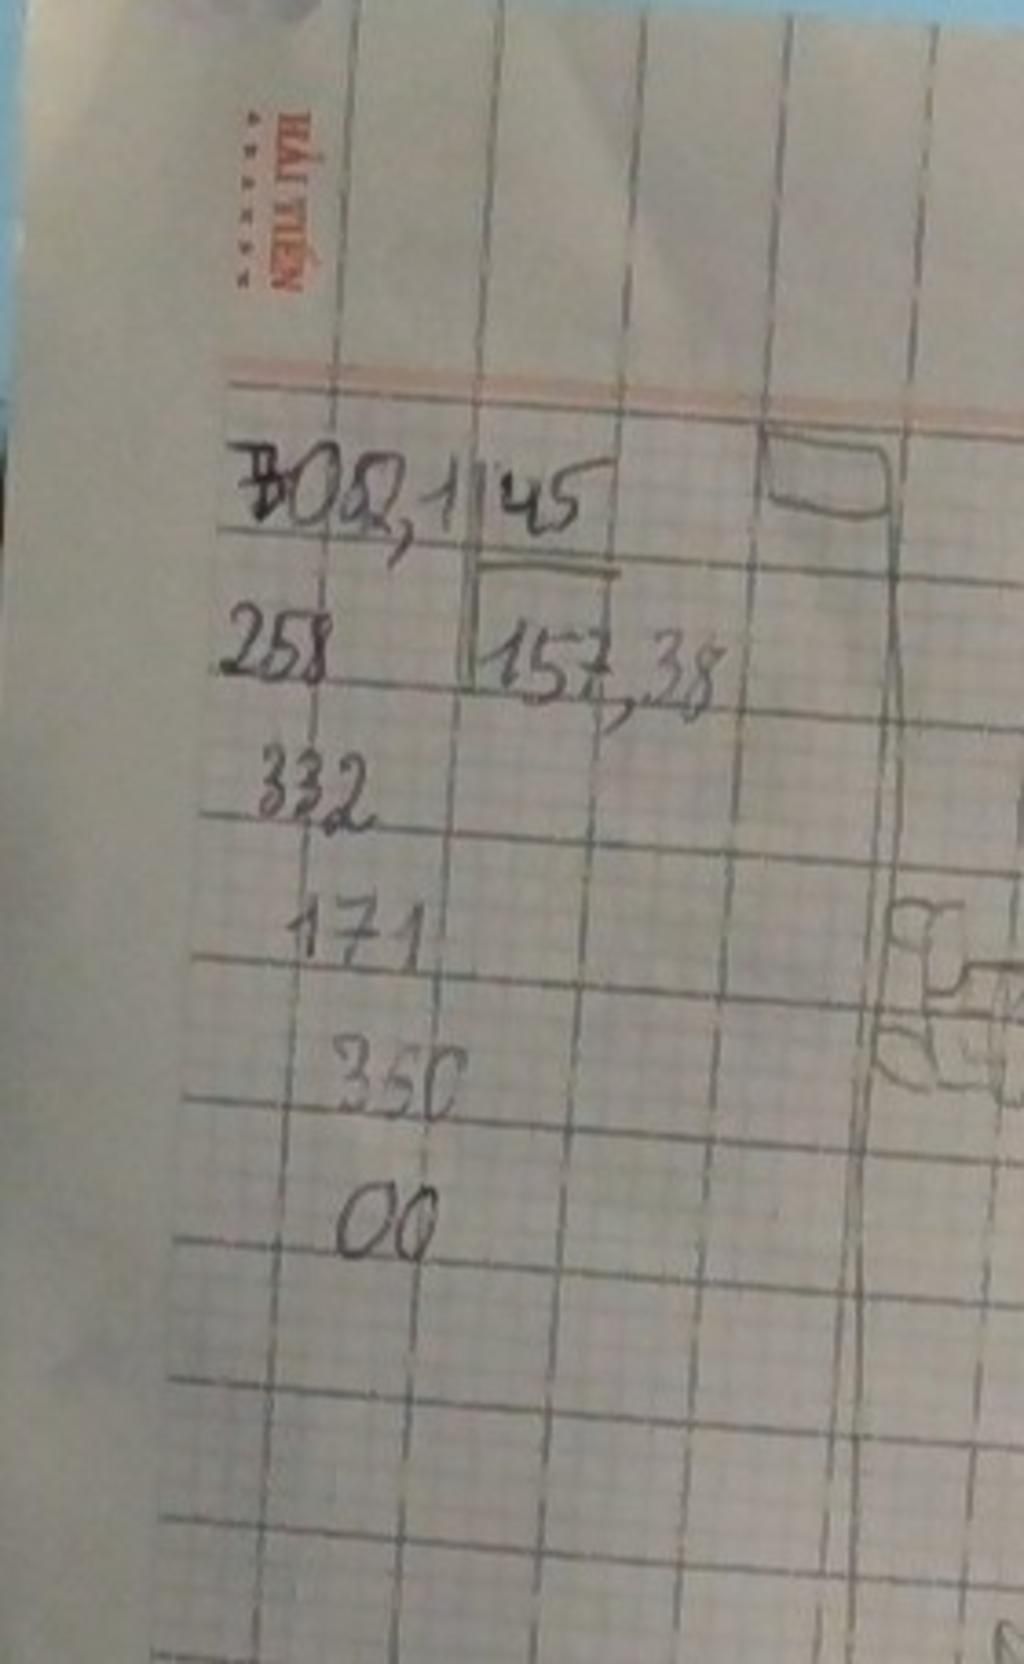 HẢI TIẾN
7082,1 45
258 157,38
332
171
360
00